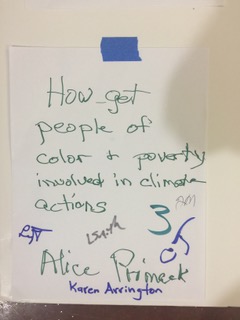 How get
people of
color + poverty
involved in climate
actions
3
AM
Alice Primack
Karen Arrington